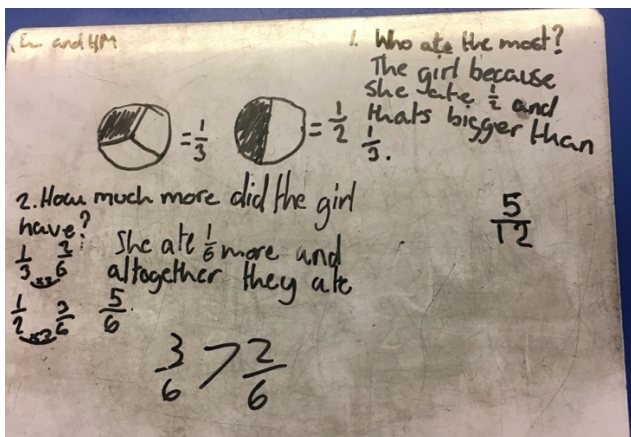 and HM
1. Who ate the most?
The girl because
she ate 1/2 and
thats bigger than
1/3.
= 1/3
= 1/2
2. How much more did the girl
have?
1/3 2/6
x2
1/2 3/6
x3
She ate 1/6 more and
altogether they ate
5/6
3/6 > 2/6
5/12